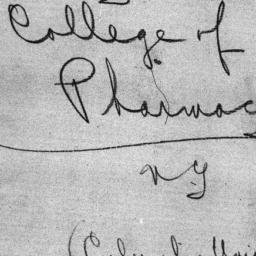 College of
Pharmac
N.Y
(Columbia Uni